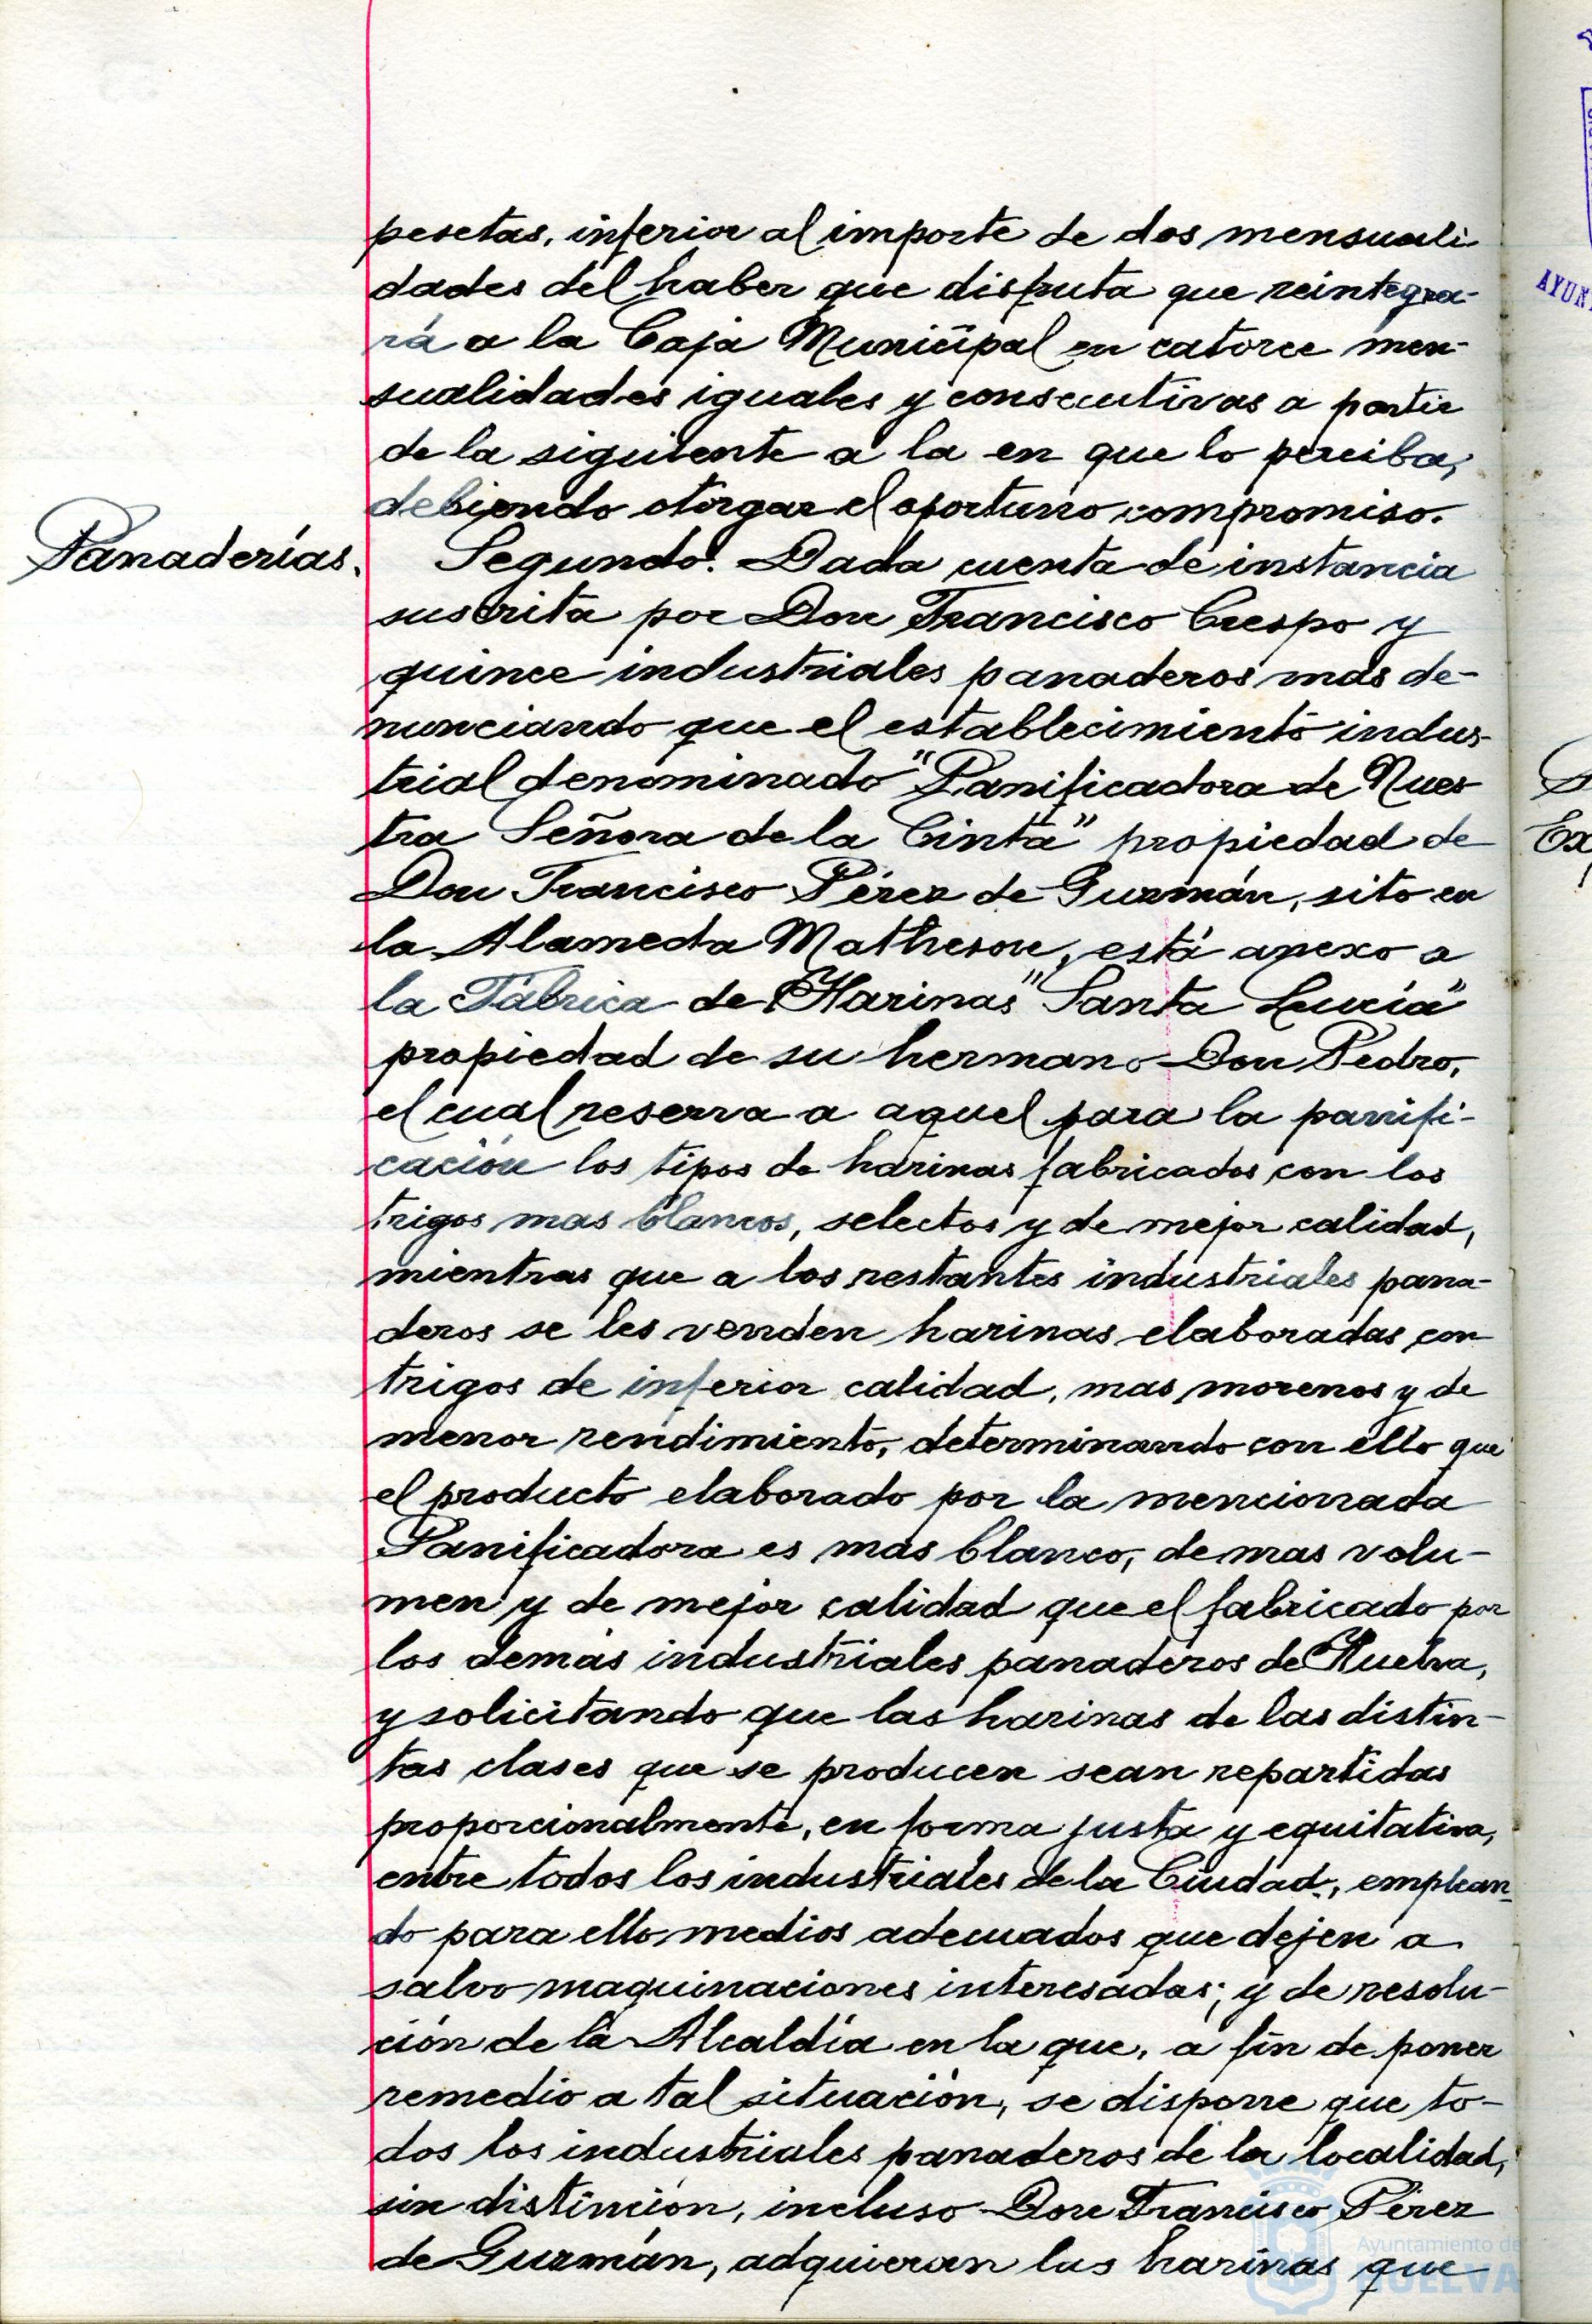 pesetas, inferior al importe de dos mensuali-
dades del haber que disfruta que reintegra-
rá a la Caja Municipal en catorce men-
sualidades iguales y consecutivas a partir
de la siguiente a la en que lo perciba,
debiendo otorgar el oportuno compromiso.
Panaderías.
Segundo. Dada cuenta de instancia
suscrita por Don Francisco Crespo y
quince industriales panaderos mas de-
nunciando que el establecimiento indus-
trial denominado "Panificadora de Nues
tra Señora de la Cinta" propiedad de
Don Francisco Pérez de Guzmán, sito en
la Alameda Matheson, está anexo a
la Fábrica de Harinas "Santa Lucía"
propiedad de su hermano Don Pedro,
el cual reserva a aquel para la panifi-
cación los tipos de harinas fabricados con los
trigos mas blancos, selectos y de mejor calidad,
mientras que a los restantes industriales pana-
deros se les venden harinas elaboradas con
trigos de inferior calidad, mas morenos y de
menor rendimiento, determinando con ello que
el producto elaborado por la mencionada
Panificadora es mas blanco, de mas volu-
men y de mejor calidad que el fabricado por
los demás industriales panaderos de Huelva,
y solicitando que las harinas de las distin-
tas clases que se producen sean repartidas
proporcionalmente, en forma justa y equitativa,
entre todos los industriales de la Ciudad, emplean-
do para ello medios adecuados que dejen a
salvo maquinaciones interesadas; y de resolu-
ción de la Alcaldía en la que, a fin de poner
remedio a tal situación, se dispone que to-
dos los industriales panaderos de la localidad,
sin distinción, incluso Don Francisco Pérez
de Guzmán, adquieran las harinas que
AYUN
Ex
Ayuntamiento de
HUELVA